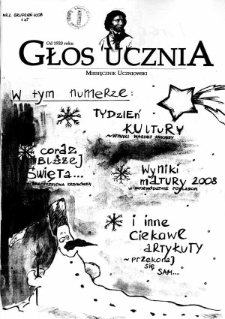 Od 1989 roku
GŁOS UCZNIA
MIESIĘCZNIK UCZNIOWSKI
W tym numerze:
TYDZIEŃ
KULTURY
coraz
BLIŻEJ
ŚWIĘTA...
WYNIKI
MATURY 2008
i inne
CIEKAWE
ARTYKUŁY
~ przekonaj
się
SAM...